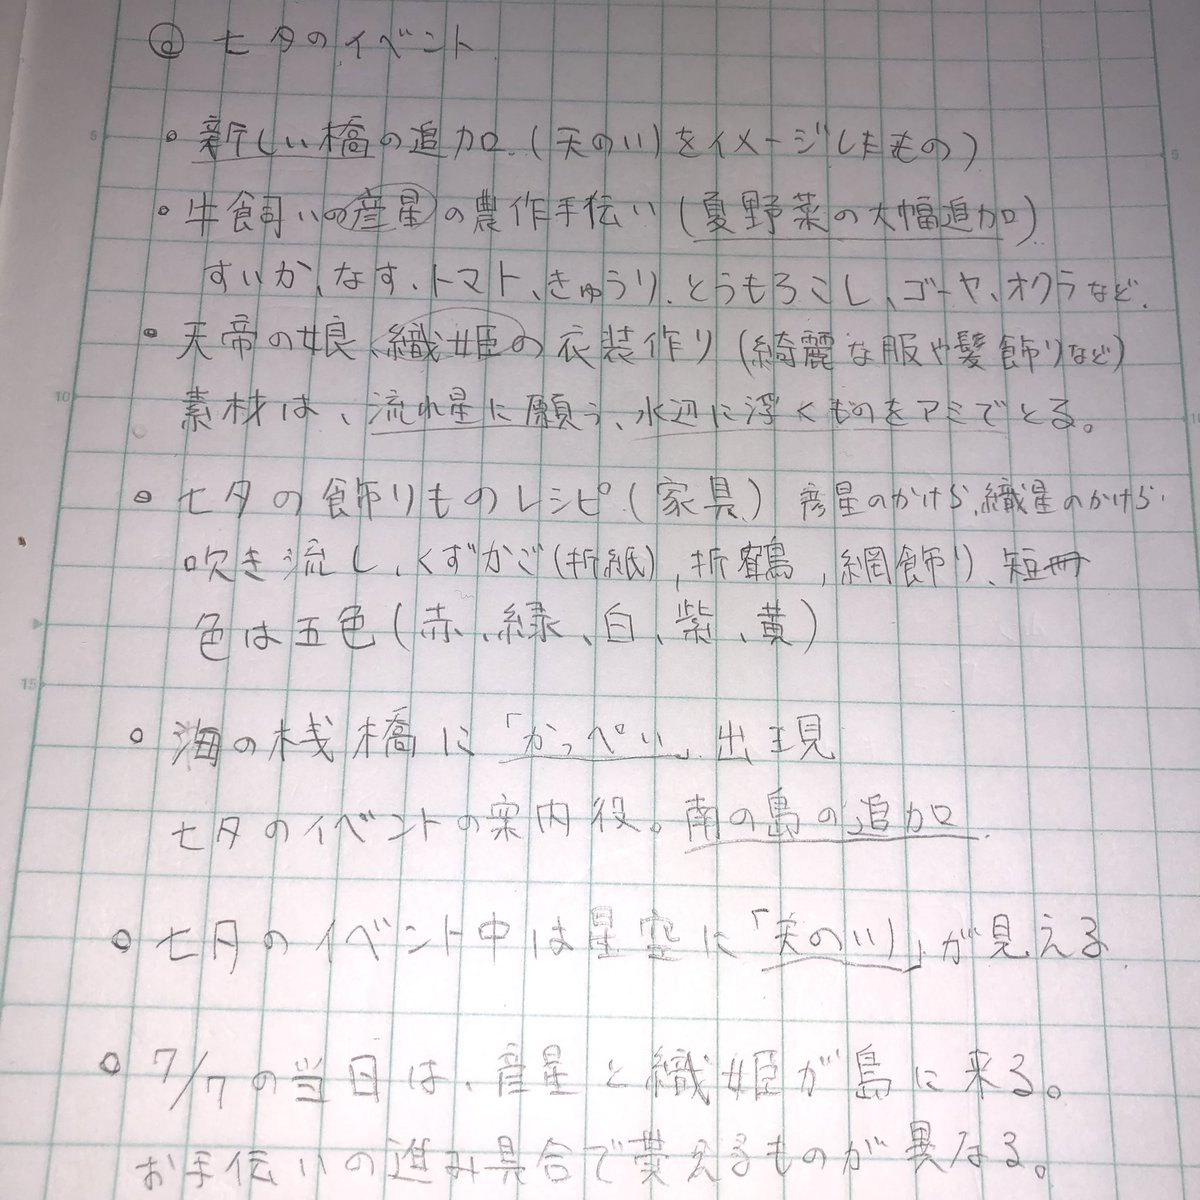 ⓓ 七夕のイベント
・新しい橋の追加.(天の川)をイメージしたもの)
・牛飼いの彦星の農作手伝い(夏野菜の大幅追加)
すいか、なす、トマト、きゅうり、とうもろこし、ゴーヤ、オクラなど.
・天帝の娘、織姫の衣装作り(綺麗な服や髪飾りなど)
素材は、流れ星に願う、水辺に浮くものをアミでとる。
・七夕の飾りものレシピ(家具) 彦星のかけら、織星のかけら
吹き流し、くずかご(折紙)、折鶴、網飾り、短冊
色は五色(赤、緑、白、紫、黄)
・海の桟橋に「かっぺい」出現
七夕のイベントの案内役。南の島の追加.
・七月のイベント中は星空に「天の川」が見える
・7/7の当日は、彦星と織姫が島に来る。
お手伝いの進み具合で貰えるものが異なる。